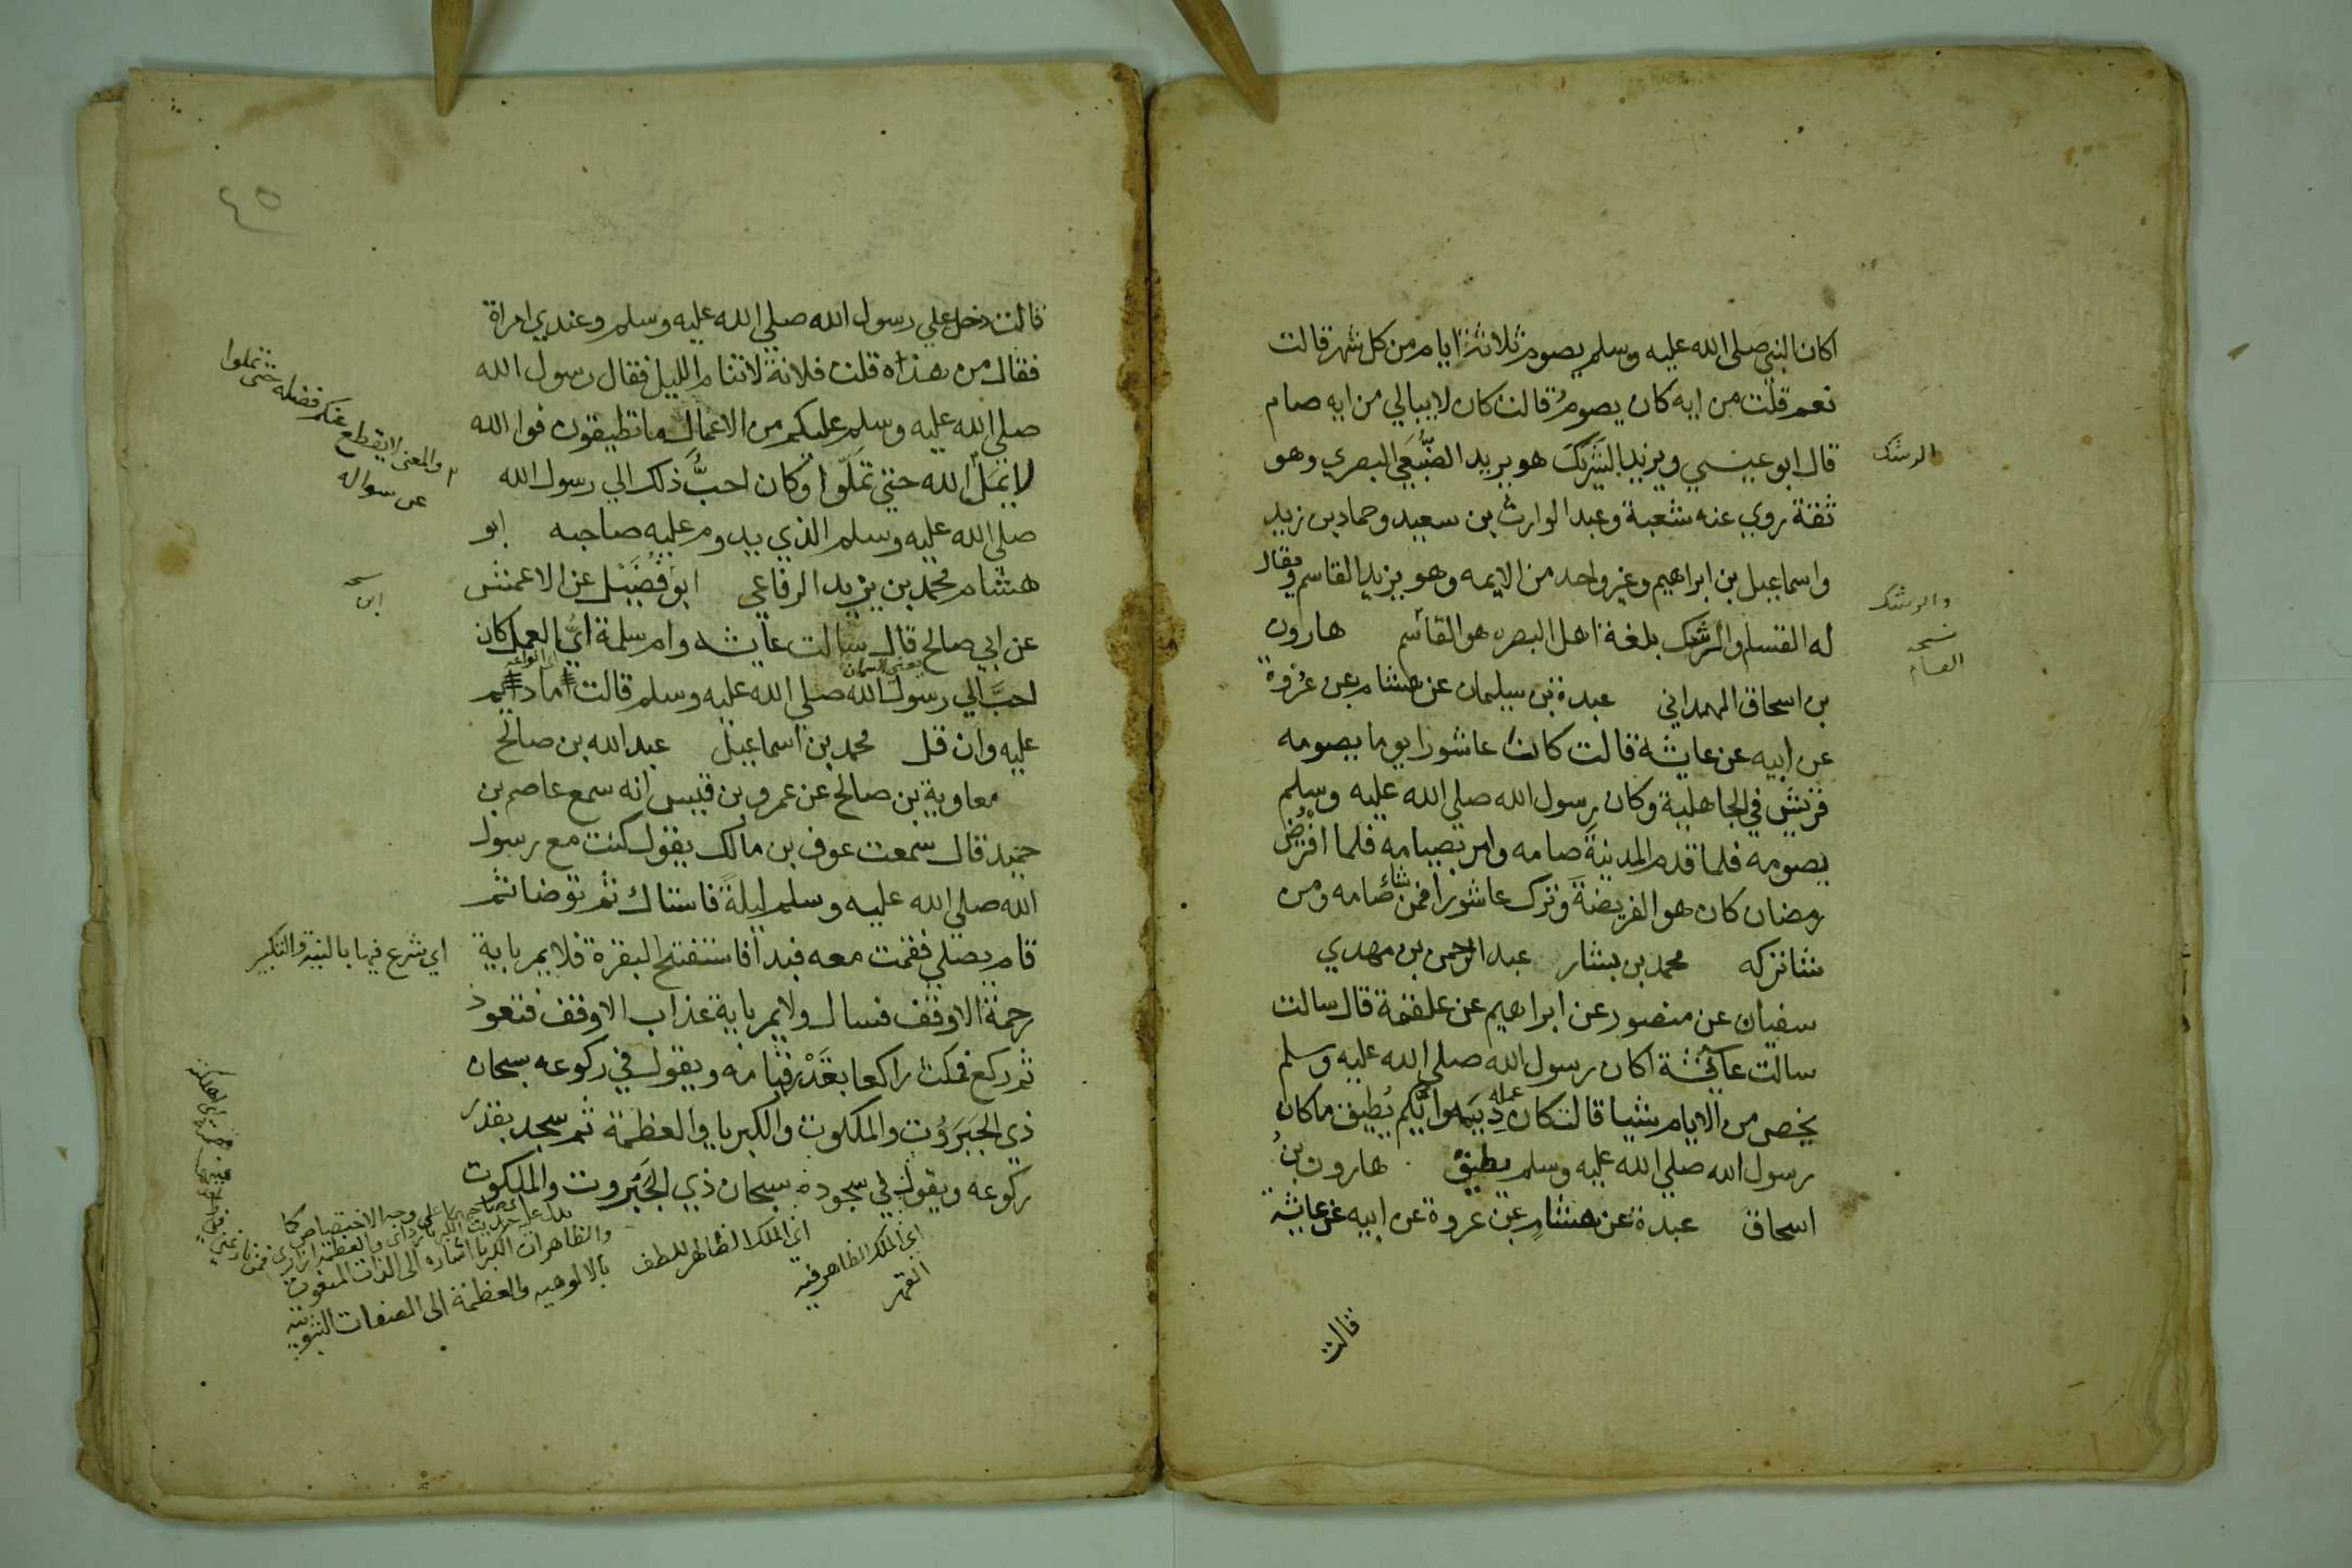 اكان النبي صلي الله عليه وسلم يصوم ثلاثة ايام من كل شهر قالت
نعم قلت من ايه كان يصوم قالت كان لا يبالي من ايه صام
قال ابو عيسي ويزيد الرشك هو يزيد الضبعي البصري وهو
الرشك
ثقة روي عنه شعبة وعبد الوارث بن سعيد وحماد بن زيد
واسماعيل بن ابراهيم وغير واحد من الايمه وهو يزيد القاسم ويقال
له القسام والرشك بلغة اهل البصره هو القاسم هارون
والرشك
نسخه
القسام
بن اسحاق الهمداني عبدة بن سليمان عن هشام بن عروة
عن ابيه عن عايشة قالت كان عاشورا يوما يصومه
قريش في الجاهلية وكان رسول الله صلي الله عليه وسلم
يصومه فلما قدم المدينة صامه وامر بصيامه فلما افترض
رمضان كان هو الفريضة وترك عاشورا فمن شاء صامه ومن
شا تركه محمد بن بشار عبد الرحمن بن مهدي
سفيان عن منصور عن ابراهيم عن علقمة قال سالت
سالت عائشة اكان رسول الله صلي الله عليه وسلم
يخص من الايام شيا قالت كان عمله ديمه وايكم يطيق ما كان
رسول الله صلي الله عليه وسلم يطيق هارون بن
اسحاق عبدة عن هشام بن عروة عن ابيه عن عايشة
قالت
٤٥
قالت دخل علي رسول الله صلي الله عليه وسلم وعندي امراة
فقال من هذه قلت فلانة لا تنام الليل فقال رسول الله
صلي الله عليه وسلم عليكم من الاعمال ما تطيقون فوا الله
لا يمل الله حتي تملوا وكان احب ذلك الي رسول الله
والمعني لا يقطع عنكم فضله حتي تملوا
عن سواله
صلي الله عليه وسلم الذي يدوم عليه صاحبه ابو
هشام محمد بن يزيد الرفاعي ابو فضيل عن الاعمش
ابن
عن ابي صالح قال سالت عايشه وام سلمة اي العمل كان
يعني السمان
احب الي رسول الله صلي الله عليه وسلم قالت ما ديم
عليه وان قل محمد بن اسماعيل عبد الله بن صالح
معاوية بن صالح عن عمرو بن قيس انه سمع عاصم بن
حميد قال سمعت عوف بن مالك يقول كنت مع رسول
الله صلي الله عليه وسلم ليلة فاستاك ثم توضا ثم
قام يصلي فقمت معه فبدا فاستفتح البقرة فلا يمر باية
اي شرع فيها بالنية والتكبير
رحمة الا وقف فسال ولا يمر باية عذاب الا وقف فتعوذ
ثم ركع فمكث راكعا بقدر قيامه ويقول في ركوعه سبحان
ذي الجبروت والملكوت والكبريا والعظمة ثم سجد بقدر
ركوعه ويقول في سجوده سبحان ذي الجبروت والملكوت
اي الملك الظاهر فيه
القهر
اي الملك الظاهر للطف
والظاهر ان الكبريا اشارة الي الذات المنعوت
بالالوهيه والعظمة الي الصفات الثبوتيه